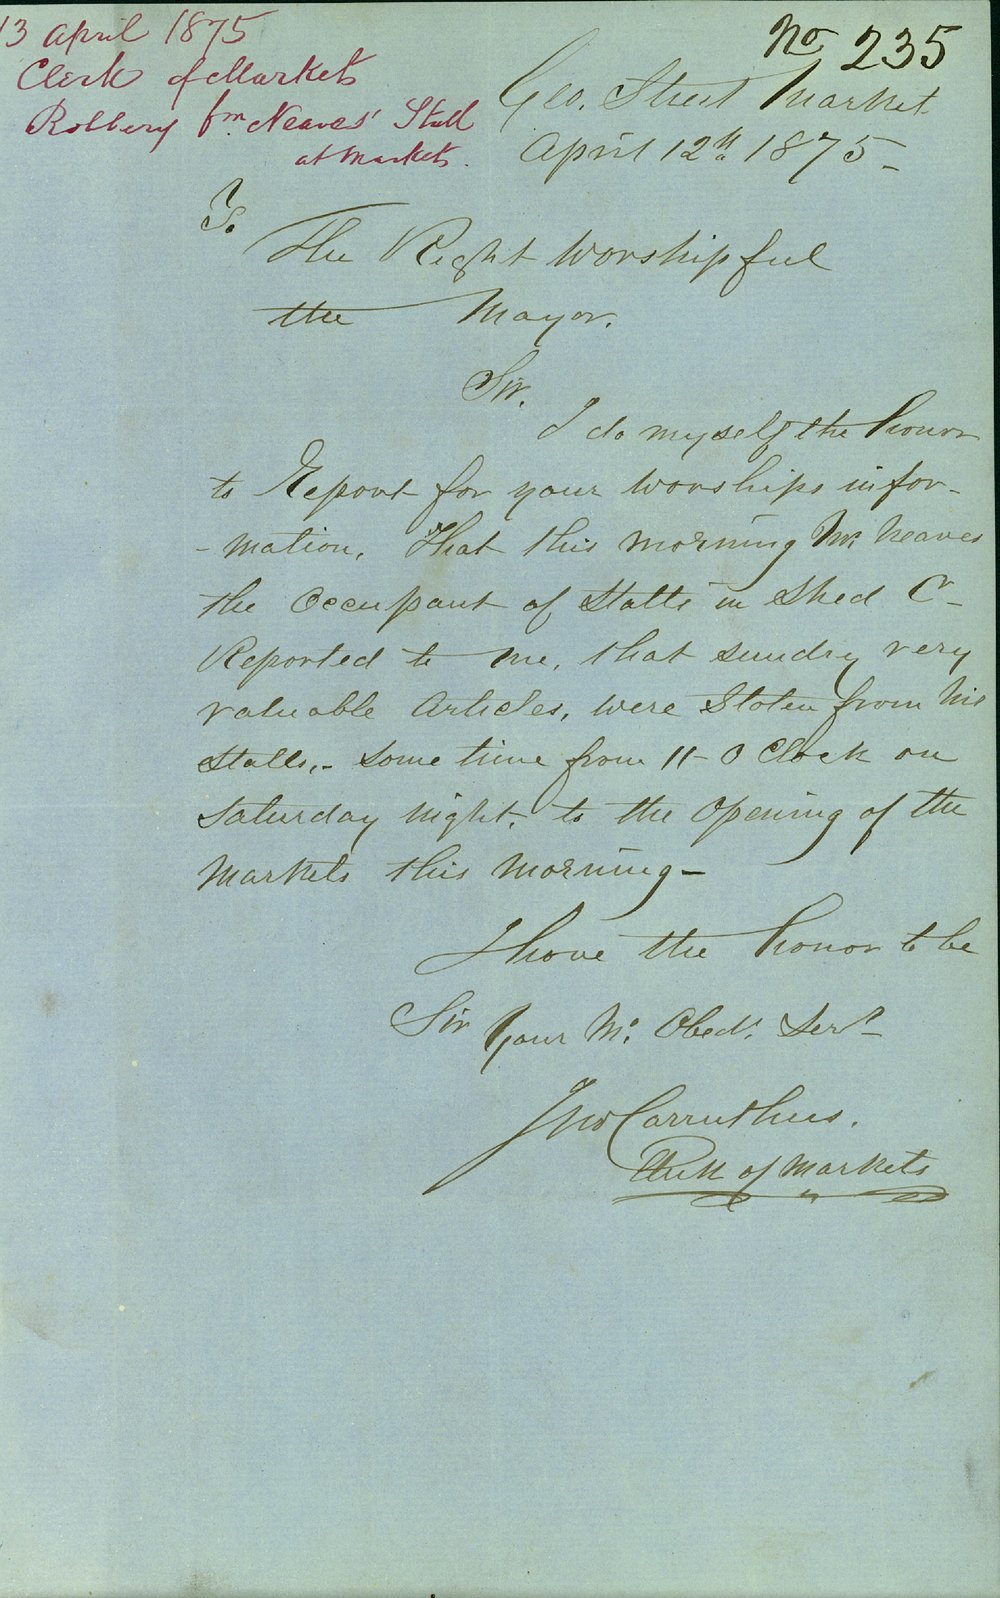 13 April 1875
Clerk of Markets
Robbery fm Neaves' Stall
at Markets.
No 235
Geo. Street Market
April 12th 1875-
To.
The Right Worshipful
the Mayor.
Sir.
I do myself the honor
to Report for your Worships infor-
-mation, that this morning Mr Neaves
the Occupant of Stalls in Shed C-
Reported to me, that sundry very
valuable Articles, were Stolen from his
Stalls,- some time from 11-O Clock on
Saturday night, to the Opening of the
Markets this Morning-
I have the honor to be
Sir Your Mt Obedt Servt
Jno Carruthers.
Clerk of Markets